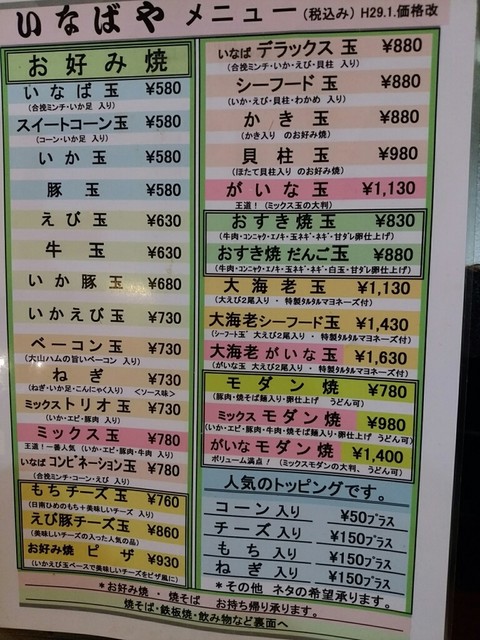 いなばや メニュー (税込み) H29.1.価格改
お好み焼
いなば玉 ¥580
(合挽ミンチ・いか足 入り)
スイートコーン玉 ¥580
(コーン・いか足 入り)
いか玉 ¥580
豚玉 ¥580
えび玉 ¥630
牛玉 ¥630
いか豚玉 ¥680
いかえび玉 ¥730
ベーコン玉 ¥730
(大山ハムの旨いベーコン 入り)
ねぎ ¥730
(ねぎ・いか足・こんにゃく入り) <ソース味>
ミックストリオ玉 ¥730
(いか・エビ・豚肉 入り)
ミックス玉 ¥780
王道!一番人気 (いか・エビ・豚肉・牛肉 入り)
いなばコンビネーション玉 ¥780
(合挽ミンチ・コーン・えび 入り)
もちチーズ玉 ¥760
(日南ひめのもち+美味しいチーズ 入り)
えび豚チーズ玉 ¥860
(美味しいチーズの入った人気の品)
お好み焼ピザ ¥930
(いかえび玉ベースで美味しいチーズをピザ風に)
いなばデラックス玉 ¥880
(合挽ミンチ・いか・えび・貝柱 入り)
シーフード玉 ¥880
(いか・えび・貝柱・わかめ 入り)
かき玉 ¥880
(かき入り のお好み焼)
貝柱玉 ¥980
(ほたて貝柱入り のお好み焼)
がいな玉 ¥1,130
王道! (ミックス玉の大判)
おすき焼玉 ¥830
(牛肉・コンニャク・エノキ・玉ネギ・ネギ・甘ダレ卵仕上げ)
おすき焼だんご玉 ¥880
(牛肉・コンニャク・エノキ・玉ネギ・ネギ・白玉・甘ダレ卵仕上げ)
大海老玉 ¥1,130
(大えび2尾入り ・ 特製タルタルマヨネーズ付)
大海老シーフード玉 ¥1,430
(シーフード玉 大えび2尾入り ・ 特製タルタルマヨネーズ付)
大海老がいな玉 ¥1,630
(がいな玉 大えび2尾入り ・ 特製タルタルマヨネーズ付)
モダン焼 ¥780
(豚肉・焼そば麺入り・卵仕上げ うどん可)
ミックスモダン焼 ¥980
(いか・エビ・豚肉・牛肉・焼そば麺入り・卵仕上げ うどん可)
がいなモダン焼 ¥1,400
ボリューム満点! (ミックスモダンの大判、うどん可)
人気のトッピングです。
コーン入り ¥50プラス
チーズ入り ¥150プラス
もち入り ¥150プラス
ねぎ入り ¥150プラス
*その他 ネタの希望承ります。
*お好み焼 ・ 焼そば お持ち帰り承ります。
焼そば・鉄板焼・飲み物など裏面へ